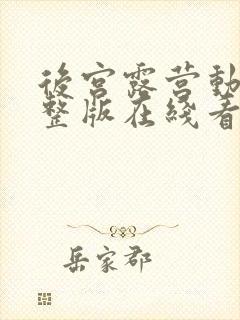 後宮露營動
整版在綫看
岳家郡